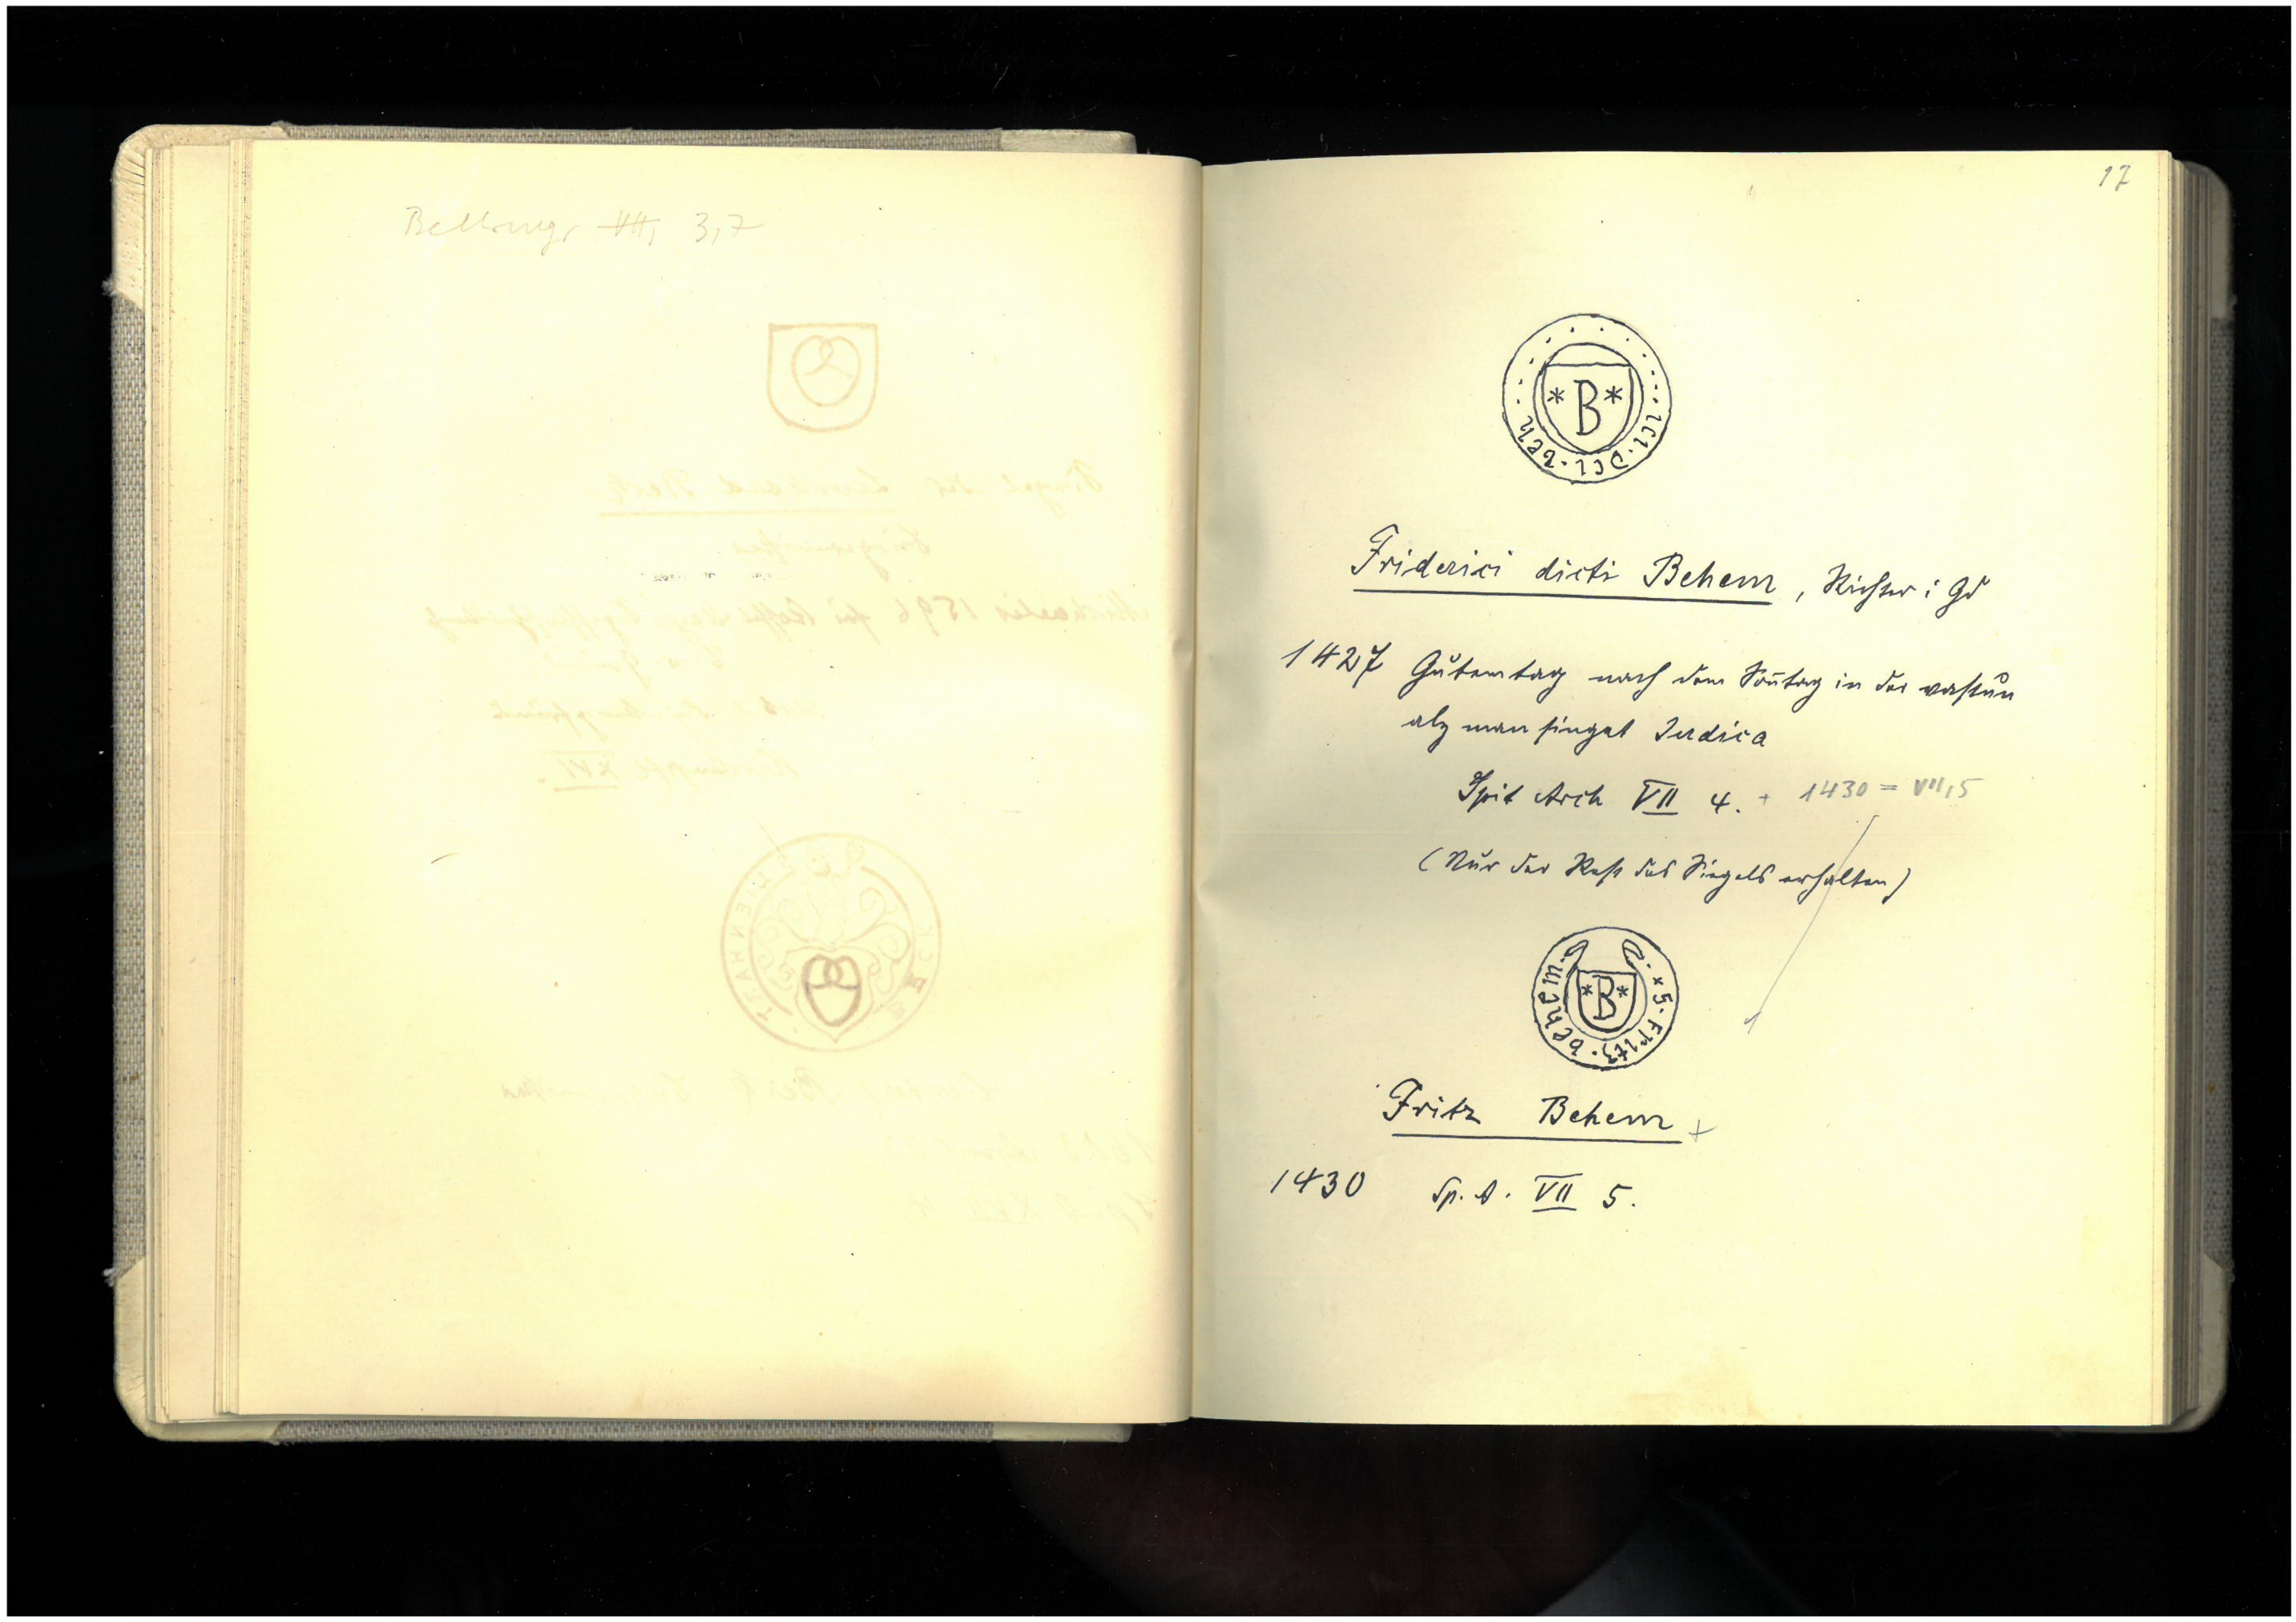 3,7
17
* B *
Friderici dicti Behem, Richter i Gd
1427 Gutemtag nach dem Sontag in der vastun
alz man singet Judica
Spit Arch VII 4. + 1430 = VII,5
(Nur der Rest des Siegels erhalten)
* B *
x S. Fritz. behem.
Fritz Behem +
1430 Sp. A. VII 5.